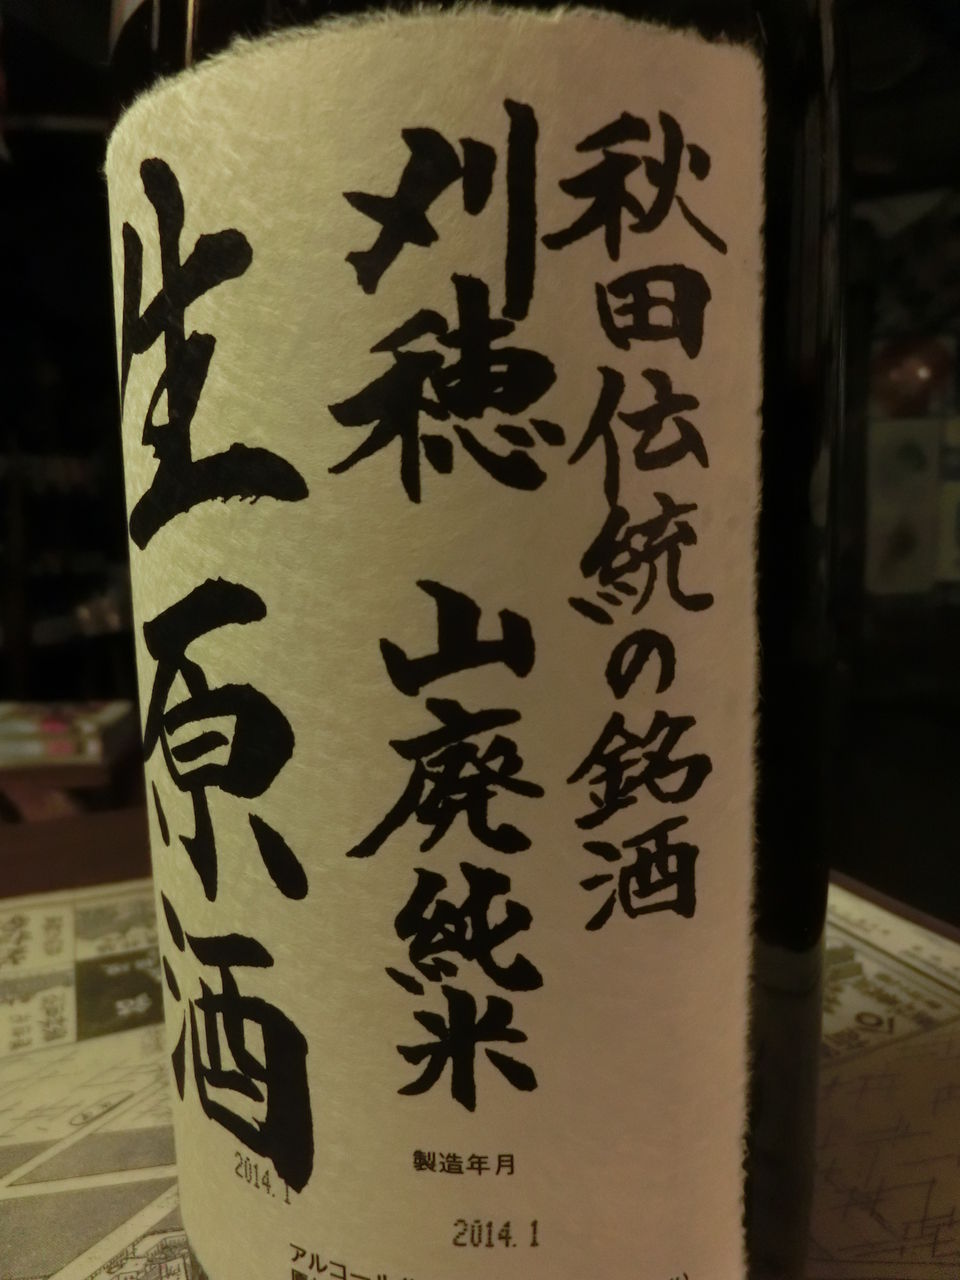 秋田伝統の銘酒
刈穂 山廃純米
生原酒
製造年月
2014. 1
2014. 1
アルコール